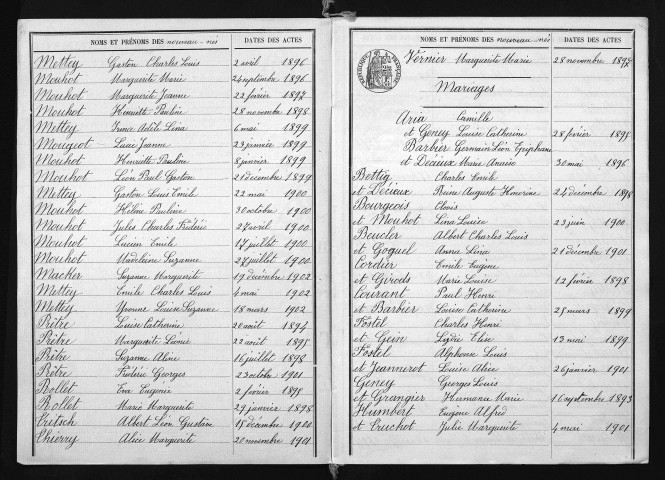 NOMS ET PRÉNOMS DES nouveau-nés DATES DES ACTES
Mettey Gaston Charles Louis 2 avril 1896
Mouhot Marguerite Marie 24 septembre 1896
Mouhot Marguerite Jeanne 22 février 1897
Mouhot Henriette Pauline 28 novembre 1898
Mettey Irma Adèle Lina 6 mai 1899
Mougeot Lucie Jeanne 23 janvier 1899
Mouhot Henriette Pauline 8 janvier 1899
Mouhot Léon Paul Gaston 21 décembre 1899
Mettey Gaston Louis Emile 22 mai 1900
Mouhot Hélène Pauline 30 octobre 1900
Mouhot Jules Charles Frédéric 27 avril 1900
Mouhot Lucien Emile 17 juillet 1900
Mouhot Madeleine Suzanne 27 juillet 1900
Macker Suzanne Marguerite 19 décembre 1902
Mettey Emile Charles Louis 4 mai 1902
Mettey Yvonne Louise Suzanne 18 mars 1902
Prêtre Louise Catherine 20 août 1894
Prêtre Marguerite Léonie 22 août 1895
Prêtre Suzanne Aline 16 juillet 1898
Prêtre Frédéric Georges 23 octobre 1901
Rollet Eva Eugénie 2 février 1895
Rollet Marie Marguerite 29 janvier 1898
Tritsch Albert Léon Gustave 15 décembre 1900
Thierry Alice Marguerite 20 novembre 1901
NOMS ET PRÉNOMS DES nouveau-nés DATES DES ACTES
Vernier Marguerite Marie 28 novembre 1897
Mariages
Aria Camille
et Geney Louise Catherine 28 février 1895
Barbier Germain Léon Epiphane
et Décieux Marie Anaïse 30 mai 1896
Bottey Charles Emile
et Décieux Reine Auguste Honorine 24 décembre 1898
Bourgeois Clovis
et Mouhot Lina Louise 23 juin 1900
Beucler Albert Charles Louis
et Goguel Anna Lina 21 décembre 1901
Cordier Emile Eugène
et Girods Marie Louise 12 février 1898
Courant Paul Henri
et Barbier Louise Catherine 25 mars 1899
Fostel Charles Henri
et Gein Lydie Elise 13 mai 1899
Fostel Alphonse Louis
et Jeanneret Louise Alice 26 janvier 1901
Geney Georges Louis
et Grangier Hermance Marie 16 septembre 1893
Humbert Eugène Alfred
et Cruchot Julie Marguerite 4 mai 1901